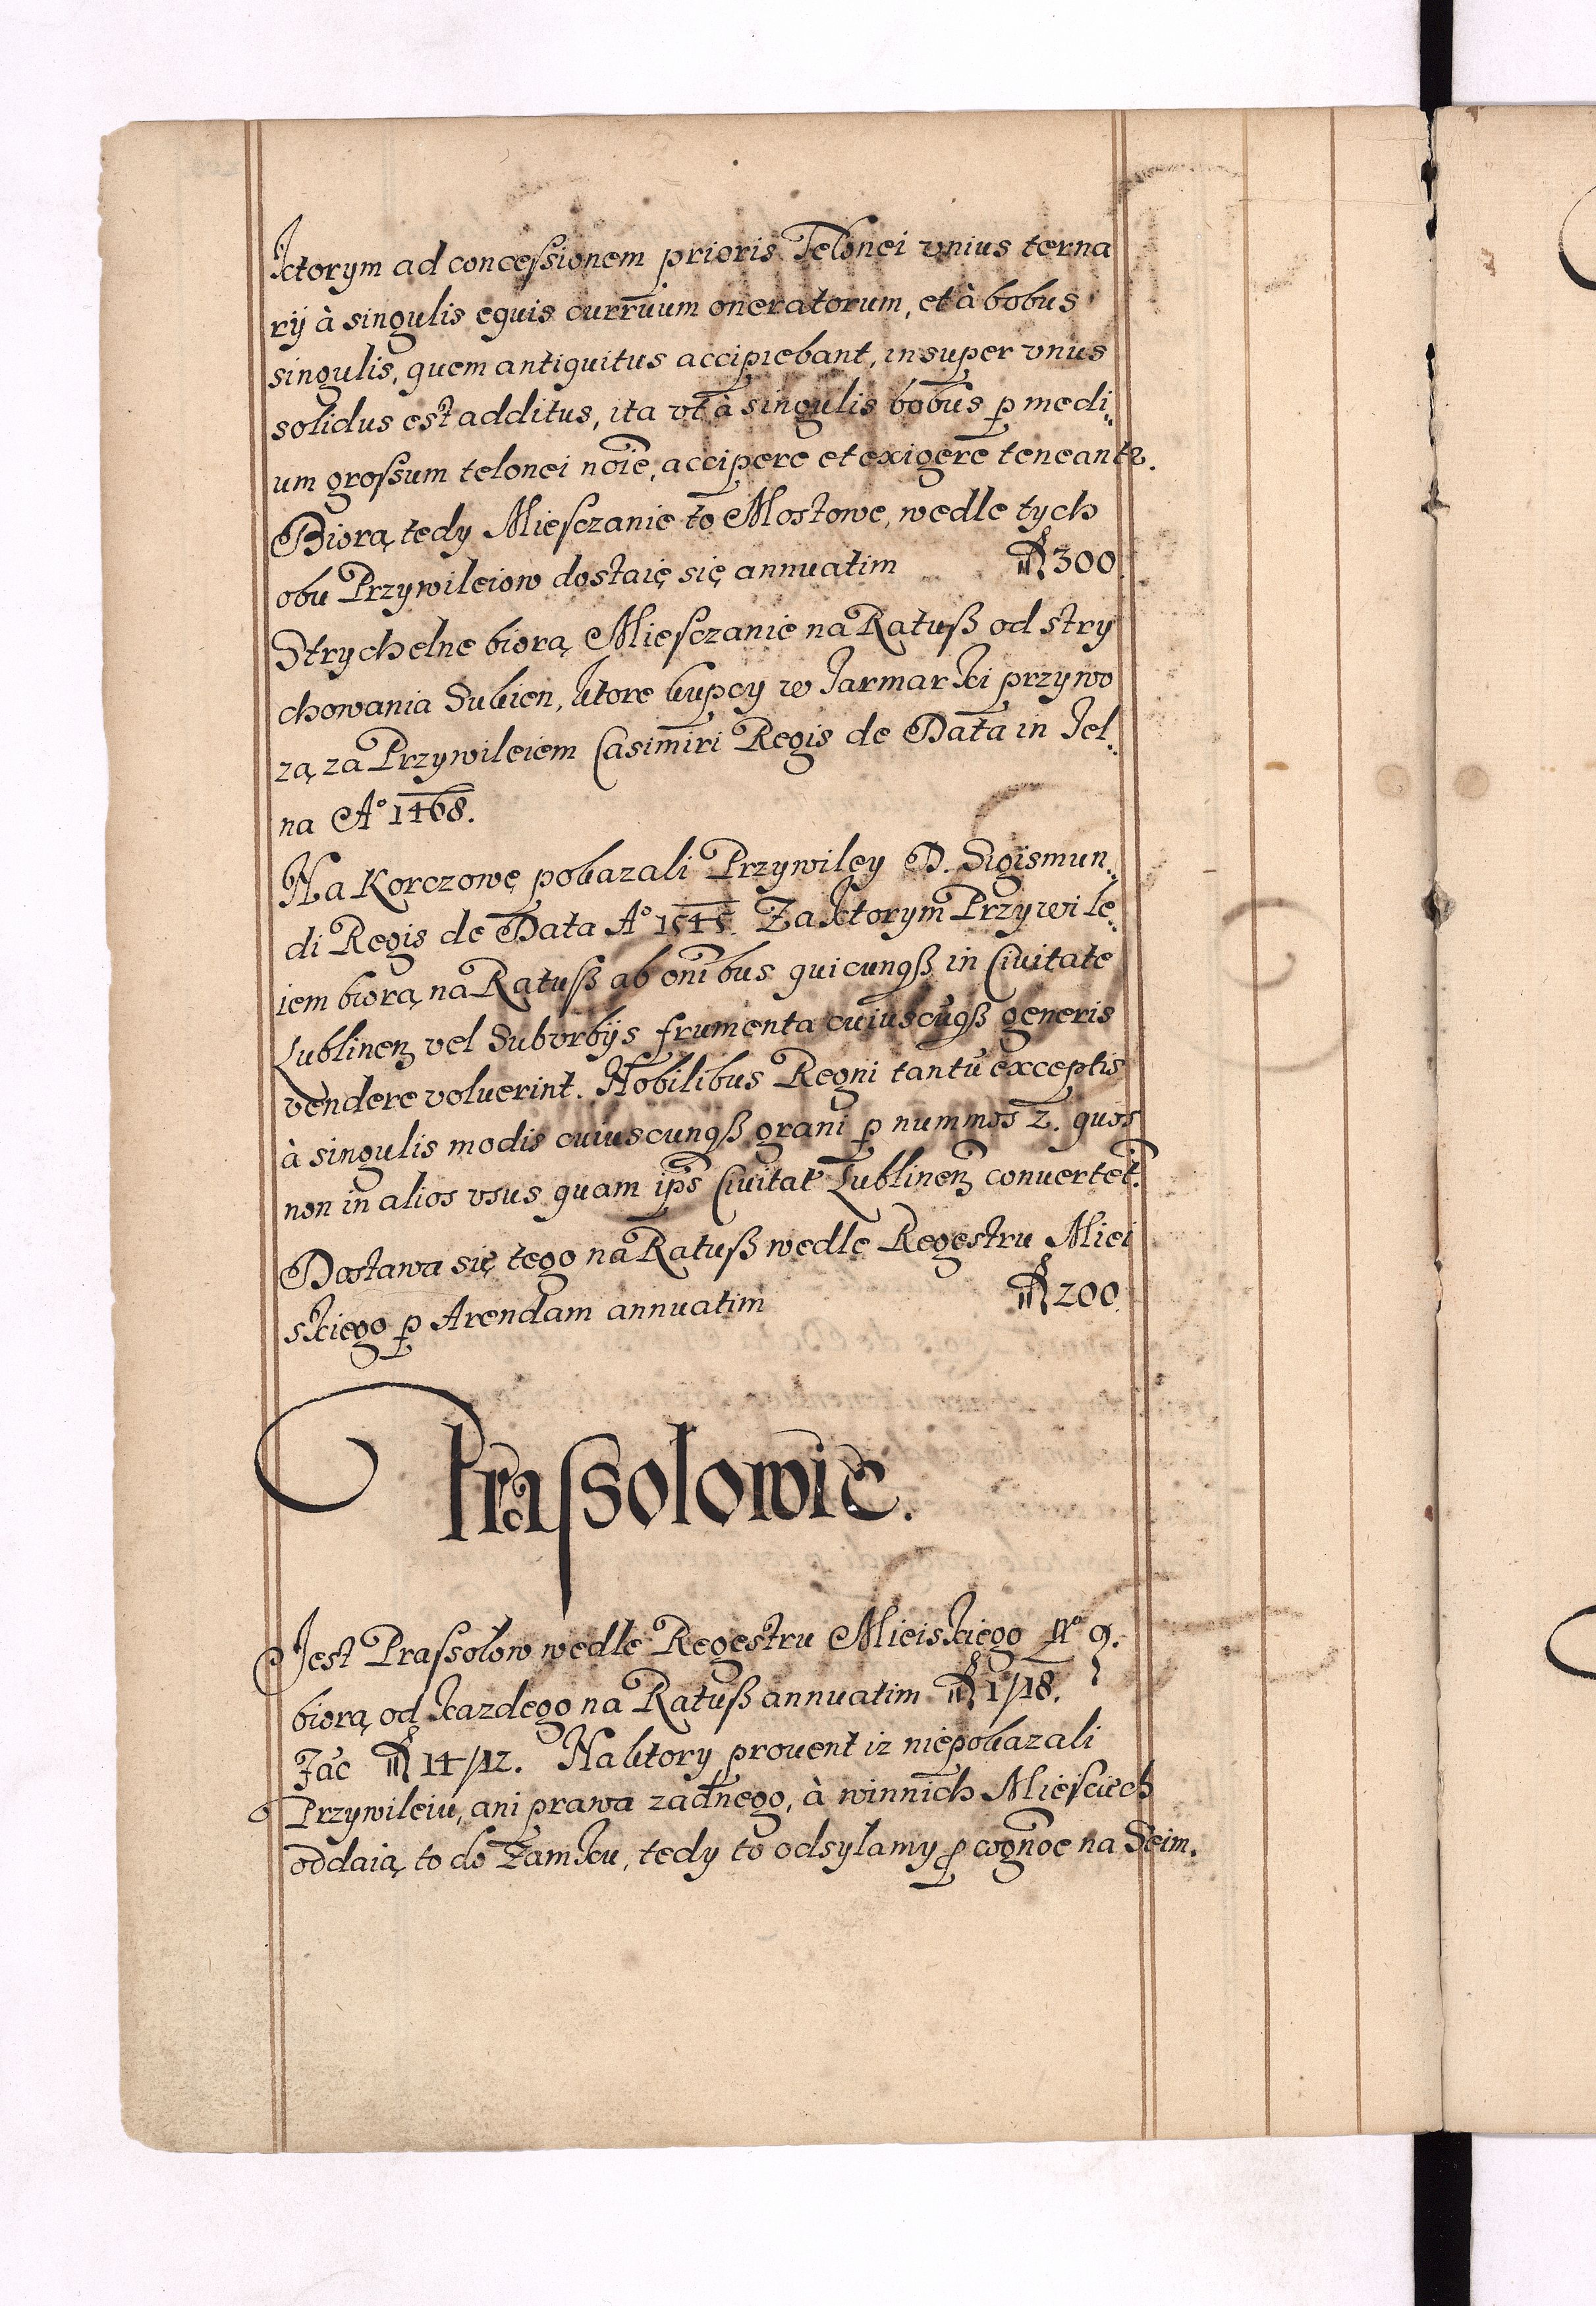 ktorym ad concessionem prioris Telonei vnius terna
rÿ à singulis equis curruum oneratorum, et à bobus
singulis, quem antiquitus accipiebant, insuper vnus
solidus est additus, ita vt à singulis bobus p medi„
um grossum telonei noie, accipere et exigere teneantr.
Biorą tedy Miesczanie to Mostowe, wedle tych
obu Przywileiow dostaię się annuatim 300
Strychelne biorą Miesczanie na Ratuß od stry
chowania Sukien, ktore kupcy w Jarmarki przywo
zą za Przywileiem Casimiri Regis de Data in Jel„
na Aº 1468.
Na Korczowę pokazali Przywiley D. Sigismun„
di Regis de Data Aº 1545. Za ktorym Przywile„
iem biorą na Ratuß ab omibus quicunqß in Ciuitate
Lublinen vel Subvrbÿs frumenta cuiuscuqß generis
vendere voluerint. Nobilibus Regni tantū exceptis
à singulis modis cuiuscunqß grani p nummos 2. quos
non in alios vsus quam ips Ciuitat Lublinen conuertet.
Dostawa się tego na Ratuß wedle Regestru Miei
skiego p Arendam annuatim 200.
Prassolowie.
Jest Prassolow wedle Regestru Mieiskiego Nº 9.
biorą od kazdego na Ratuß annuatim 1/18.
Fac 14/12. Na ktory prouent iz niepokazali
Przywileiu, ani prawa zadnego, à w innich Miesciech
oddaią to do Zamku, tedy to odsylamy p cognoe na Seim.